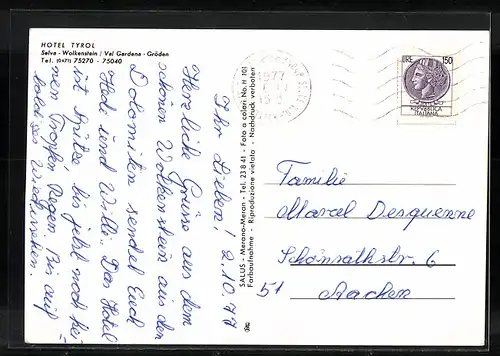 HOTEL TYROL
Selva - Wolkenstein / Val Gardena - Gröden
Tel. (0471) 75270 - 75040
Ihr Lieben! 2.10.77
Herzliche Grüsse aus dem
schönen Wolkenstein aus den
Dolomiten sendet Euch
Hede und Willi. Das Hotel
ist Spitze, bis jetzt noch kei-
nen Tropfen Regen. Bis auf
Wiedersehen.
SALUS - Merano-Meran - Tel. 23 8 41 - Foto a colori No. H 101
Farbaufnahme - Riproduzione vietata - Nachdruck verboten
1977
LIRE 150
REPVBBLICA
ITALIANA
Familie
Marcel Desquenne
Schönrathstr. 6
51 Aachen